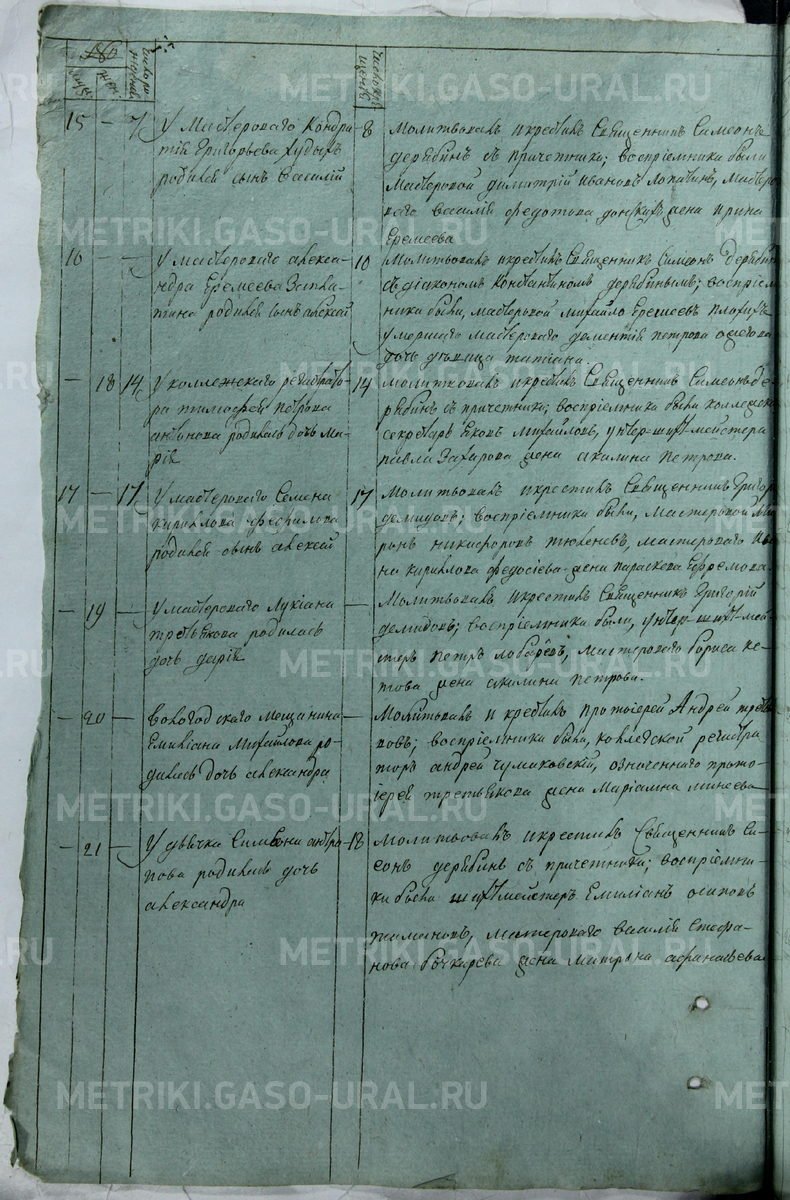 муж:
жен:
15 — 7 У Мастероваго Кондра
тія Григорьева Худыхъ
родился сынъ Василій
8 Молитвовалъ и крестилъ Священникъ Симеонъ
дерябинъ съ причетники; воспріемники были
Мастеровой димитрій Ивановъ Лопатинъ, Мастеро
ваго василія Федотова донскихъ жена ирина
Еремеева
16 — — У мастероваго алекса-
ндра Еремеева
родился сынъ алексей
10 Молитвовалъ и крестилъ Священникъ Симеонъ дерябин
съ діакономъ Константиномъ дерябинымъ; воспріем
ники были, мастеровой михайло Еремеевъ Плохихъ
умершаго мастероваго дементія петрова
дочь девица татіана.
— 18 14 У коллежскаго регистрато-
ра тимофея петрова
антонова родилась дочь ма-
рія
14 Молитвовалъ и крестилъ Священникъ Симеонъ де-
рябинъ съ причетники; воспріемники были коллежск
секретарь Яковъ Михайловъ, унтер-шихтмейстера
павла Захарова жена акилина петрова.
17 — 17 У мастероваго Семена
кирилова
родился сынъ алексей
17 Молитвовалъ и крестилъ Священникъ Григор
демидовъ; воспріемники были, мастеровой Ми
ронъ никифоровъ тюкеневъ, мастероваго Ива
на кирилова федосіева жена параскева Ефремова.
— 19 — У мастероваго Лукіана
третьякова родилась
дочь дарія
— Молитвовалъ и крестилъ Священникъ Григорій
демидовъ; воспріемники были, унтер-шихтмей
стеръ петръ мастероваго бориса ке-
това жена акилина петрова.
— 20 — вологодскаго мещанина
Емиліана Михайлова ро-
дилась дочь александра
— Молитвовалъ и крестилъ протоіерей Андрей третья
ковъ; воспріемники были, коллежской регистра
торъ андрей чумаковскій, означеннаго прото-
іерея третьякова жена Маріамна минеева
— 21 — У дьячка Симеона антро
пова родилась дочь
александра
18 Молитвовалъ и крестилъ Священникъ Си-
меонъ дерябинъ съ причетники; воспріемни-
ки были шихтмейстеръ Емиліанъ осиповъ
мастероваго василія Стефа-
нова бочкарева жена матрона афанасьева
METRIKI.GASO-URAL.RU